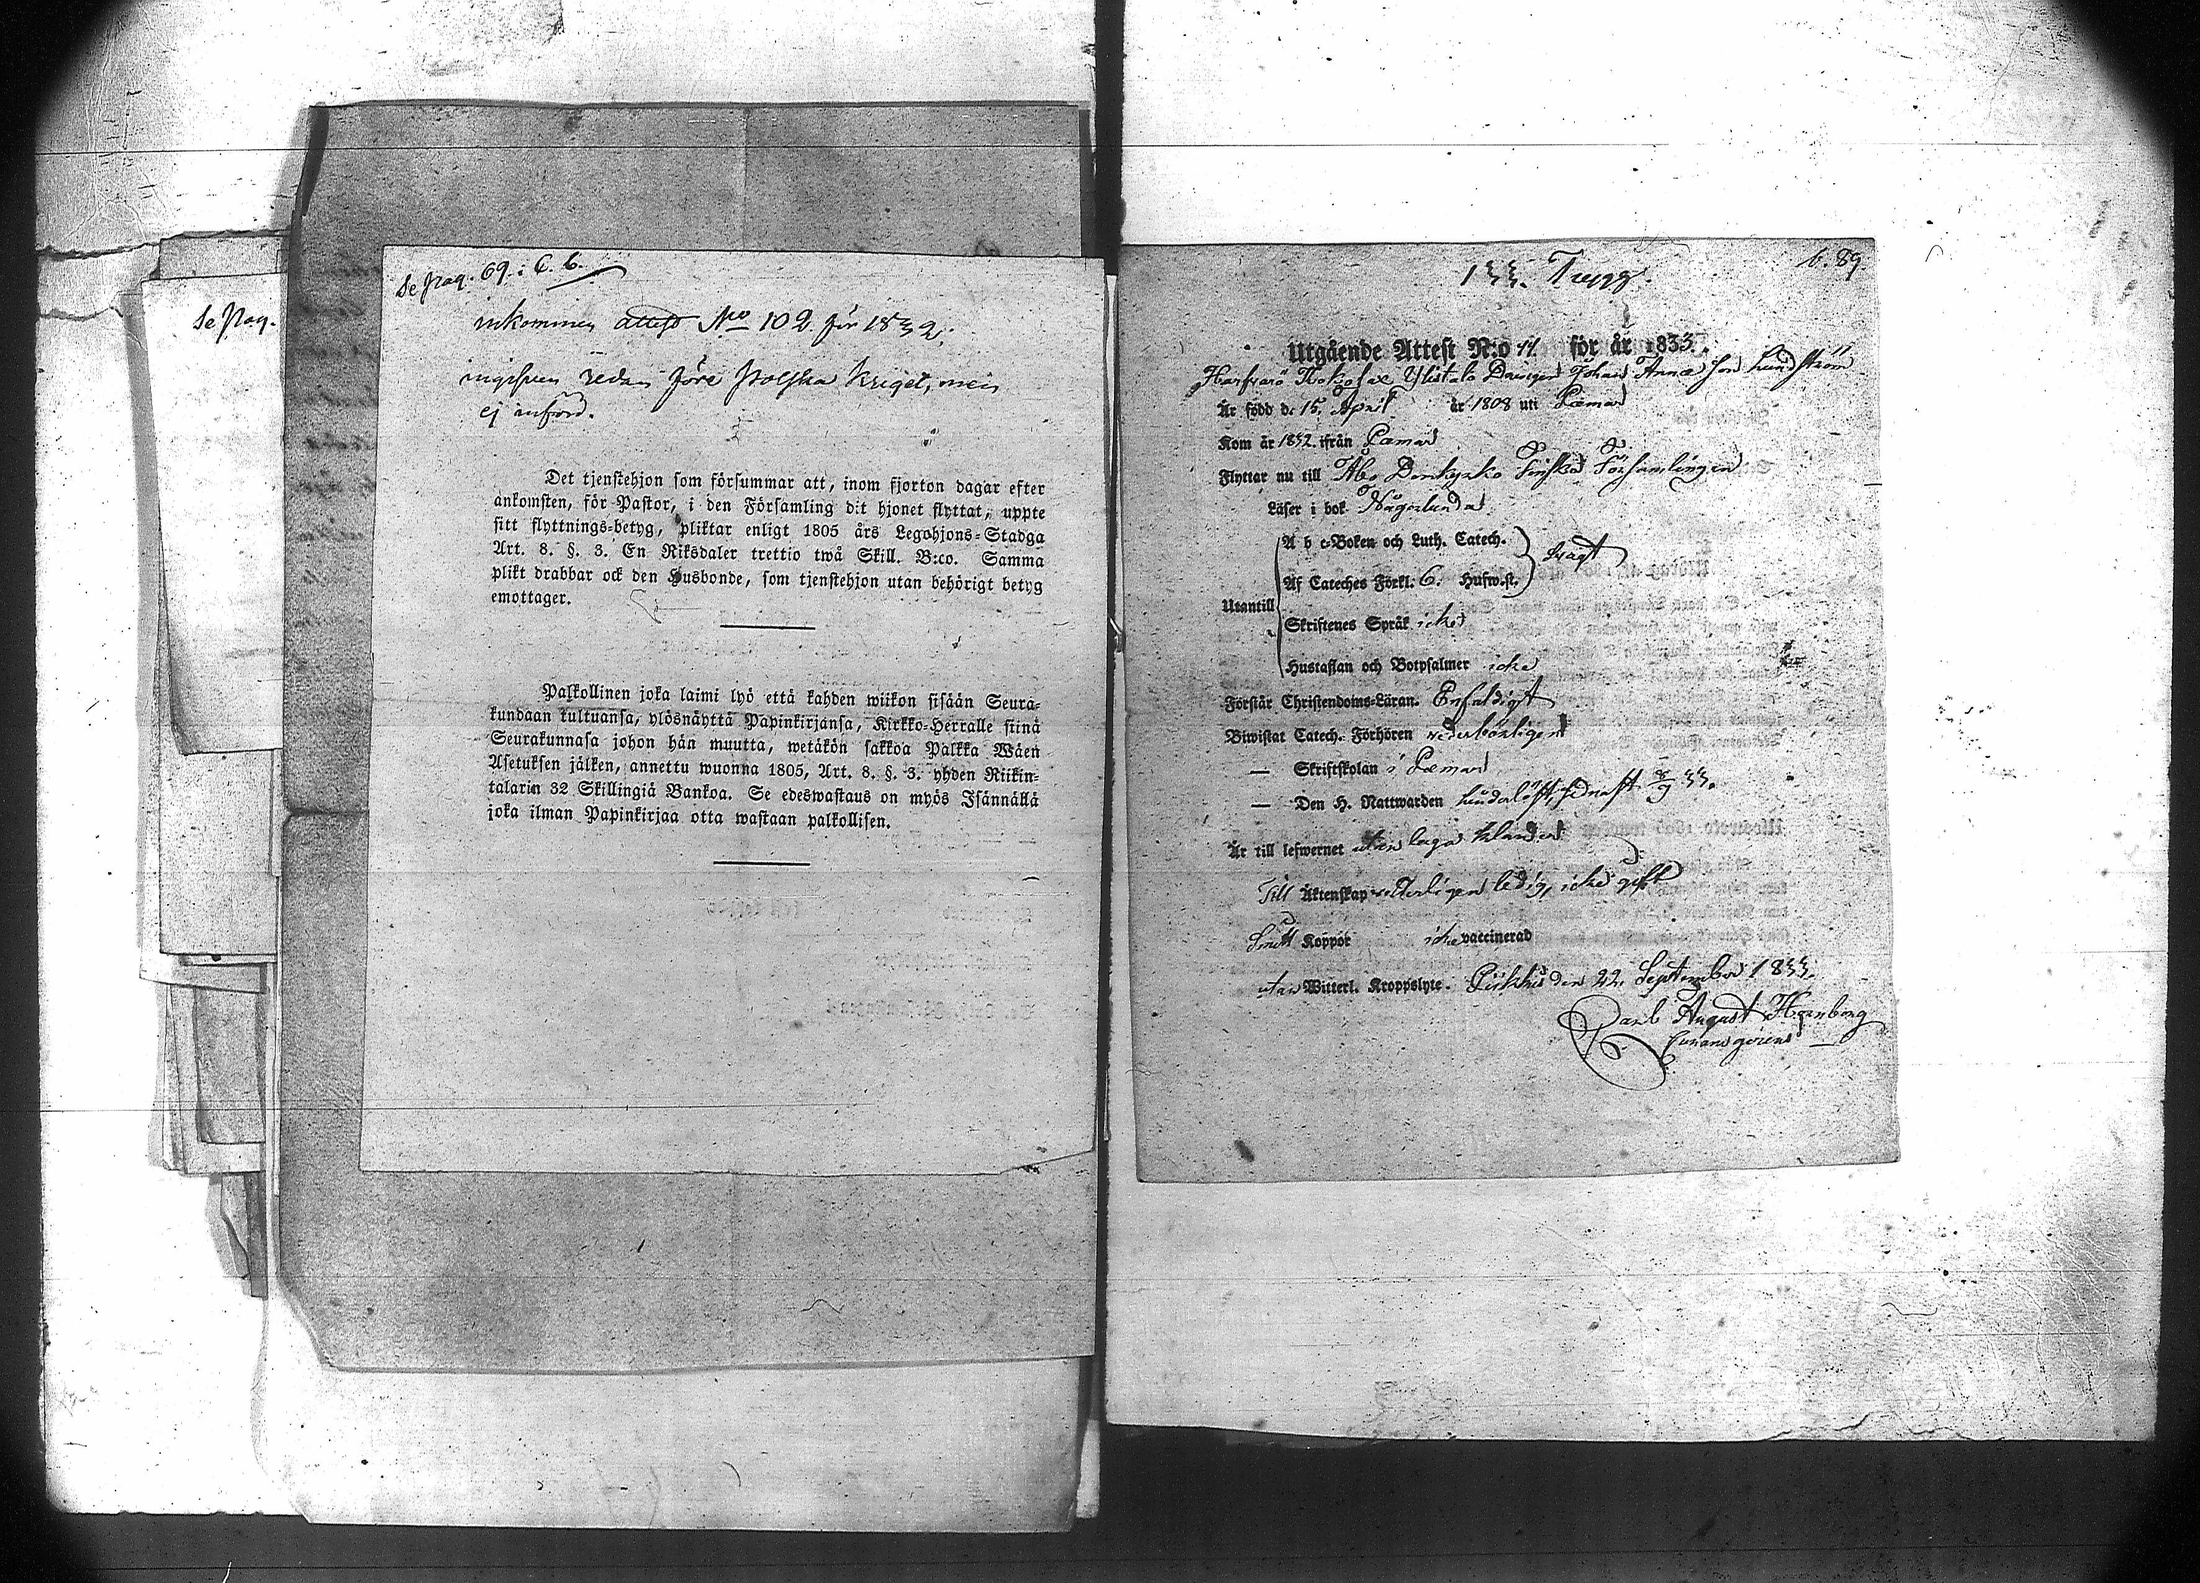 Se pag.
Se pag. 69. i C. b.
inkommen attest No 102 för 1832,
ingifven redan före polska kriget, men
ej införd.
Det tjenstehjon som försummar att, inom fjorton dagar efter
ankomsten, för Pastor, i den Församling dit hjonet flyttat, uppte
sitt flyttnings-betyg, pliktar enligt 1805 års Legohjons-Stadga
Art. 8. §. 3. En Riksdaler trettio twå Skill. B:co. Samma
plikt drabbar ock den Husbonde, som tjenstehjon utan behörigt betyg
emottager.
Palkollinen joka laimi lyö että kahden wiikon sisään Seura-
kundaan tultuansa, ylösnäyttä Papinkirjansa, Kirkko-Herralle siinä
Seurakunnasa johon hän muutta, wetäkön sakkoa Palkka Wäen
Asetuksen jälken, annettu wuonna 1805, Art. 8. §. 3. yhden Riikin-
talarin 32 Skillingiä Bankoa. Se edeswastaus on myös Isännällä
joka ilman Papinkirjaa otta wastaan palkollisen.
b. 89.
133. Trygg.
Utgående Attest N:o 11. för år 1833.
Ylistalo Drengen Johan Anna son Lundström
Är född d. 15. April år 1808 uti Pemar
Kom år 1832. ifrån Pemar
Flyttar nu till Åbo Domkyrko Finska Församlingen
Läser i bok Någorlunda
A b c-Boken och Luth. Catech.
swagt
Af Cateches Förkl. 6. Hufw.st.
Utantill
Skriftenes Språk icke
Hustaflan och Botpsalmer icke
Förstår Christendoms-Läran. Enfaldigt
Biwistat Catech. Förhören wederbörligen
— Skriftskolan i Pemar
— Den H. Nattwarden senast 8/9 33.
Är till lefwernet utan laga klander
Till Äktenskap ledig, icke gift
Koppor icke vaccinerad
utan Witterl. Kroppslyte. Piikkis den 22. September 1833.
Carl August